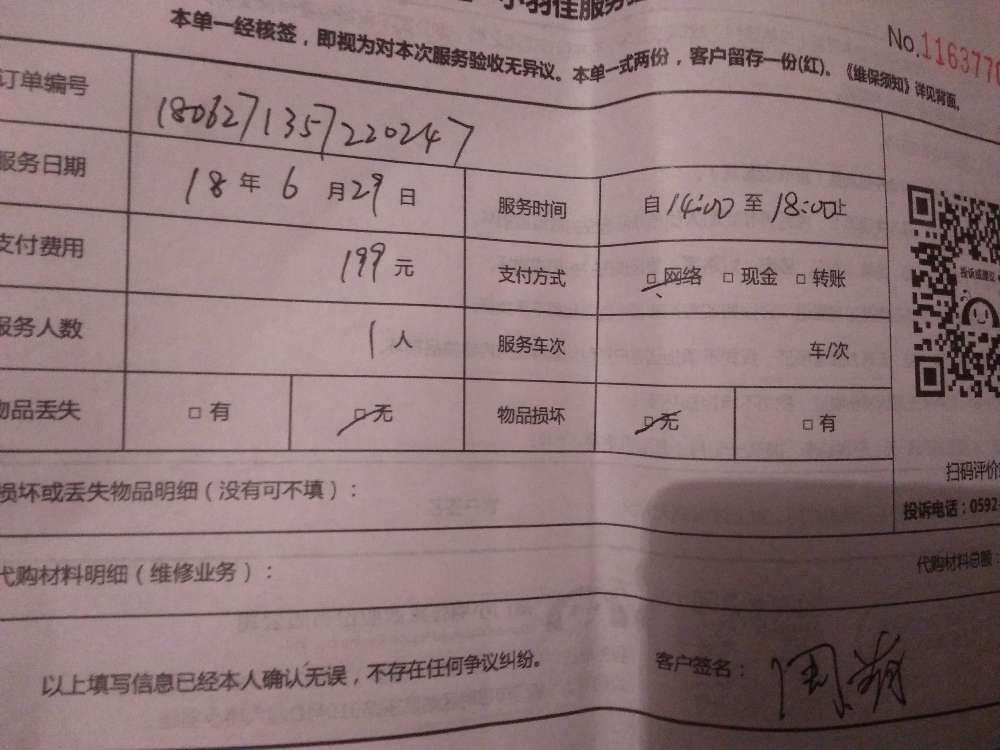 小羽佳服务
本单一经核签，即视为对本次服务验收无异议。本单一式两份，客户留存一份(红)。《维保须知》详见背面。
No.1163770
订单编号 180627135722024 7
服务日期 18 年 6 月 29 日 服务时间 自 14:00 至 18:00止
支付费用 199 元 支付方式 □ 网络 □ 现金 □ 转账
服务人数 1 人 服务车次 车/次
物品丢失 □ 有 □ 无 物品损坏 □ 无 □ 有
投诉或建议
扫码评价
投诉电话：0592-
损坏或丢失物品明细（没有可不填）：
代购材料明细（维修业务）：
代购材料总额：
以上填写信息已经本人确认无误，不存在任何争议纠纷。
客户签名：